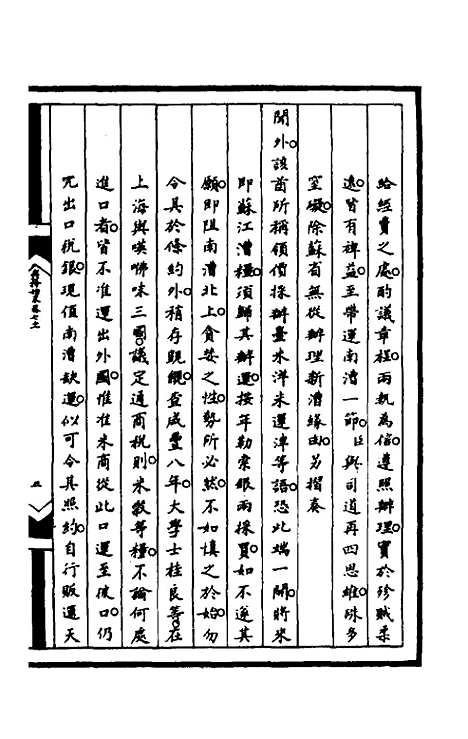 給經費之處。酌議章程。兩執為信。遵照辦理。實於殄賊柔
遠。皆有裨益。至帶運南漕一節。臣與司道再四思維。殊多
窒礙。除蘇省無從辦理新漕緣由。另摺奏
聞外。該酋所稱領價採辦臺米洋米運津等語。恐此端一開。將來
即蘇江漕糧。須歸其辦運。按年勒索銀兩採買。如不遂其
願。即阻南漕北上。貪婪之性。勢所必然。不如慎之於始。勿
令其於條約外。稍存覬覦。查咸豐八年。大學士桂良等。在
上海與嘆咈咪三國。議定通商稅則。米穀等糧。不論何處
進口者。皆不准運出外國。惟准米商從此口運至彼口。仍
完出口稅銀。現值南漕缺運。似可令其照約。自行販運天
五